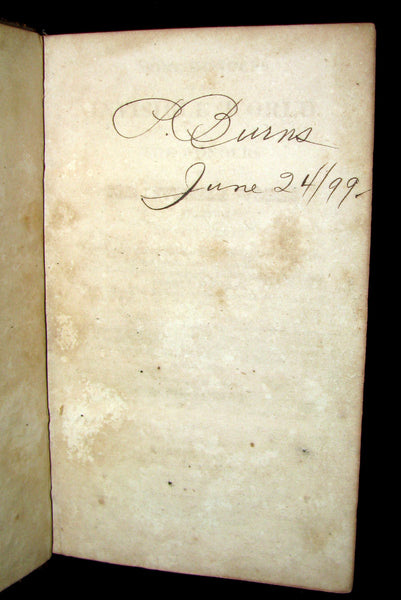 P. Burns
June 24/99